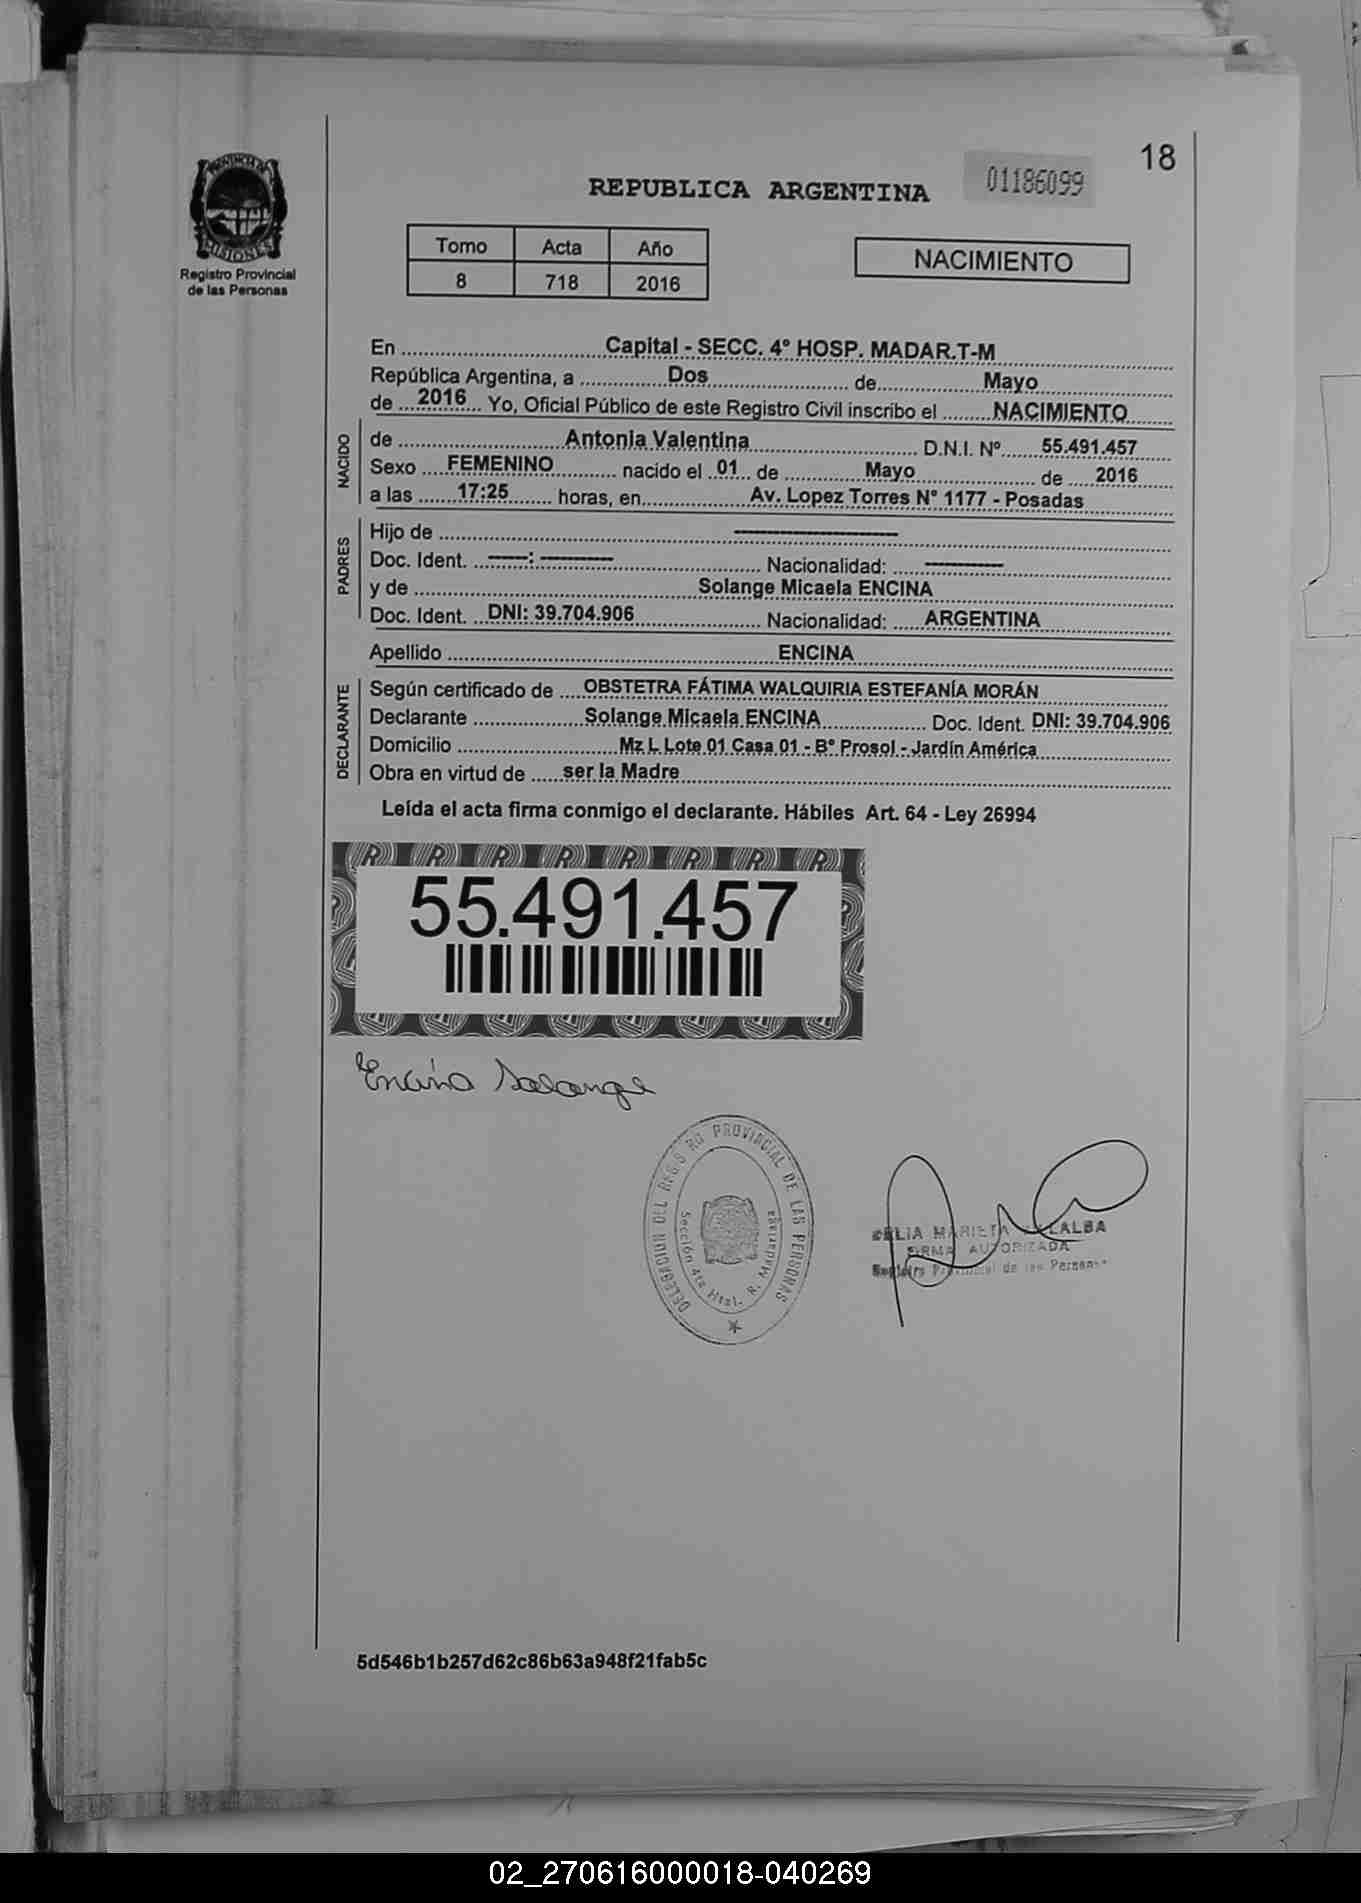 18
PROVINCIA DE
MISIONES
Registro Provincial
de las Personas
REPUBLICA ARGENTINA
01186099
Tomo Acta Año
8 718 2016
NACIMIENTO
En ........ Capital - SECC. 4° HOSP. MADAR.T-M
República Argentina, a ........ Dos ........ de ........ Mayo
de ... 2016 ... Yo, Oficial Público de este Registro Civil inscribo el ........ NACIMIENTO
NACIDO
de ........ Antonia Valentina ........ D.N.I. Nº ...... 55.491.457
Sexo .... FEMENINO ........ nacido el .01.. de ........ Mayo ........ de .... 2016
a las ...... 17:25 ...... horas, en ........ Av. Lopez Torres N° 1177 - Posadas
PADRES
Hijo de ........ --------------------
Doc. Ident. .. -----: --------- ........ Nacionalidad: ..... ----------
y de ........ Solange Micaela ENCINA
Doc. Ident. .. DNI: 39.704.906 ........ Nacionalidad: ..... ARGENTINA
Apellido ........ ENCINA
DECLARANTE
Según certificado de .... OBSTETRA FÁTIMA WALQUIRIA ESTEFANÍA MORÁN
Declarante ........ Solange Micaela ENCINA ........ Doc. Ident. DNI: 39.704.906
Domicilio ........ Mz L Lote 01 Casa 01 - B° Prosol - Jardín América
Obra en virtud de ..... ser la Madre
Leída el acta firma conmigo el declarante. Hábiles Art. 64 - Ley 26994
55.491.457
Encina Solange
DELEGACION DEL REGISTRO PROVINCIAL DE LAS PERSONAS
Sección 4ta Htal. R. Madariaga
MARIETA VILLALBA
FIRMA AUTORIZADA
Registro Provincial de las Personas
5d546b1b257d62c86b63a948f21fab5c
02_270616000018-040269